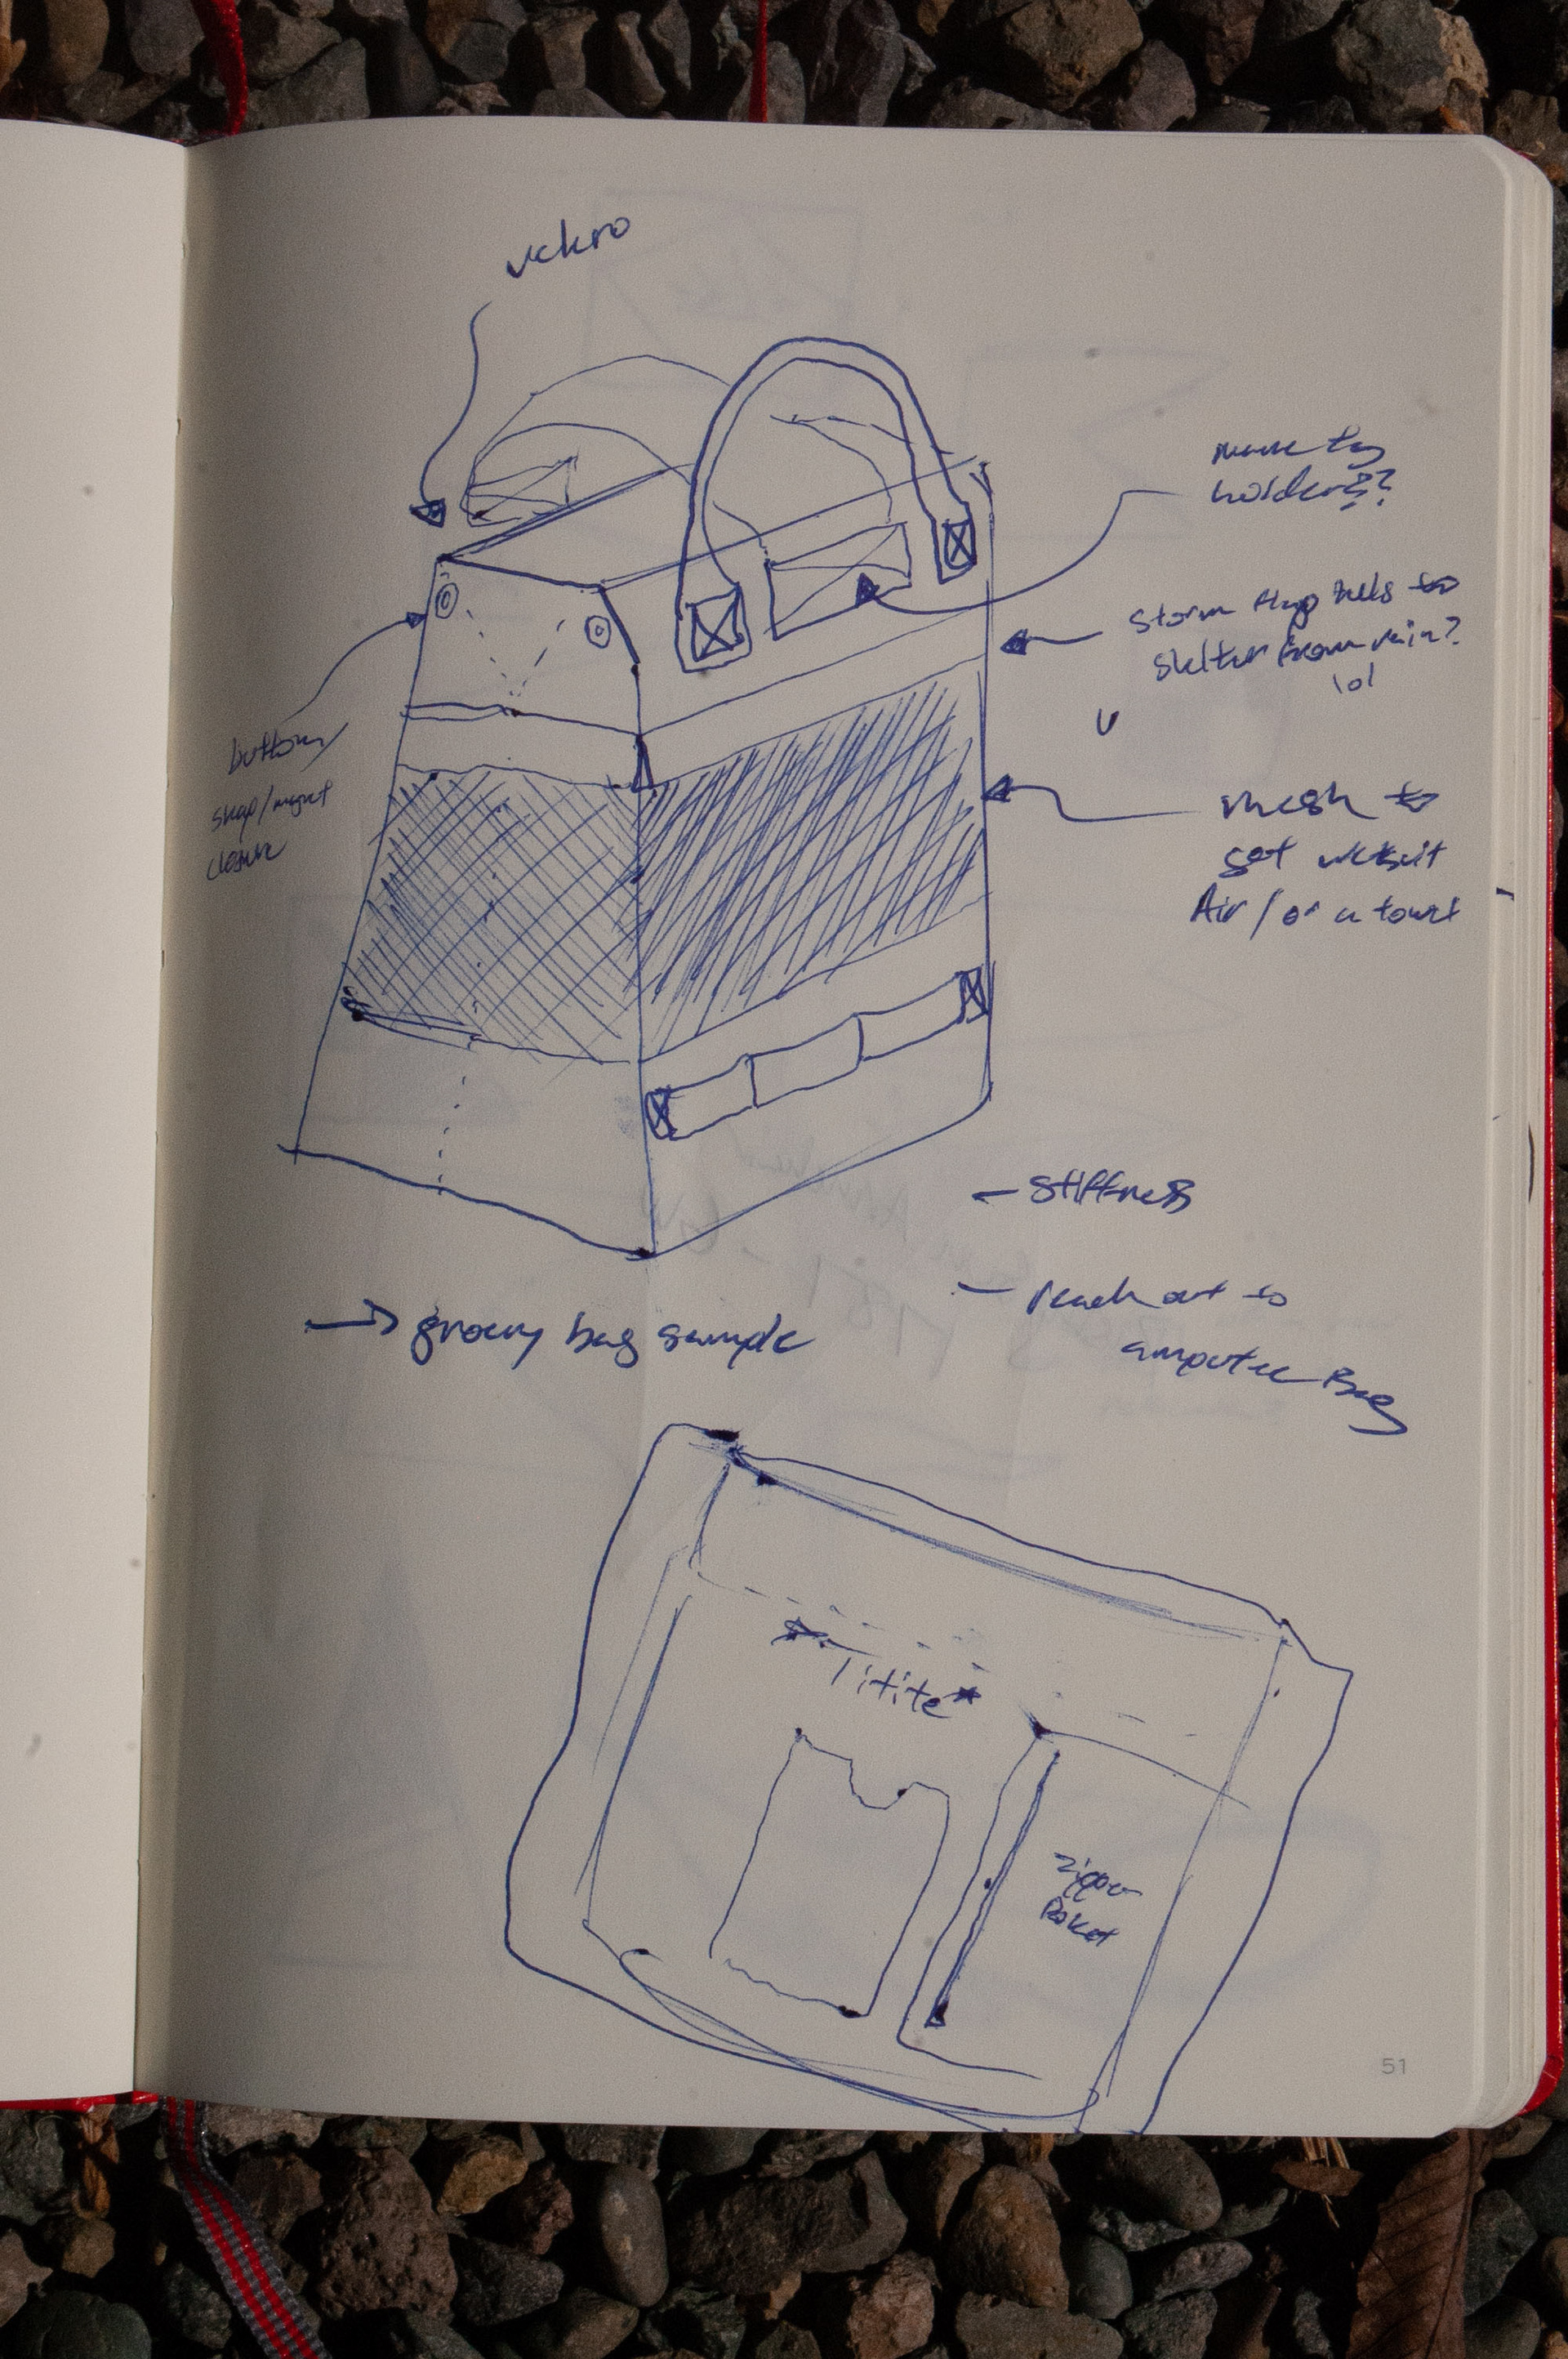 velcro
name tag
holder??
storm flap tells to
shelter from rain?
lol
button/
snap/magnet
closure
mesh to
get wetsuit
Air/or a towel
- stiffness
- reach out to
amputee Bag
→ grocery bag sample
Titite*
zipper
Pocket
51